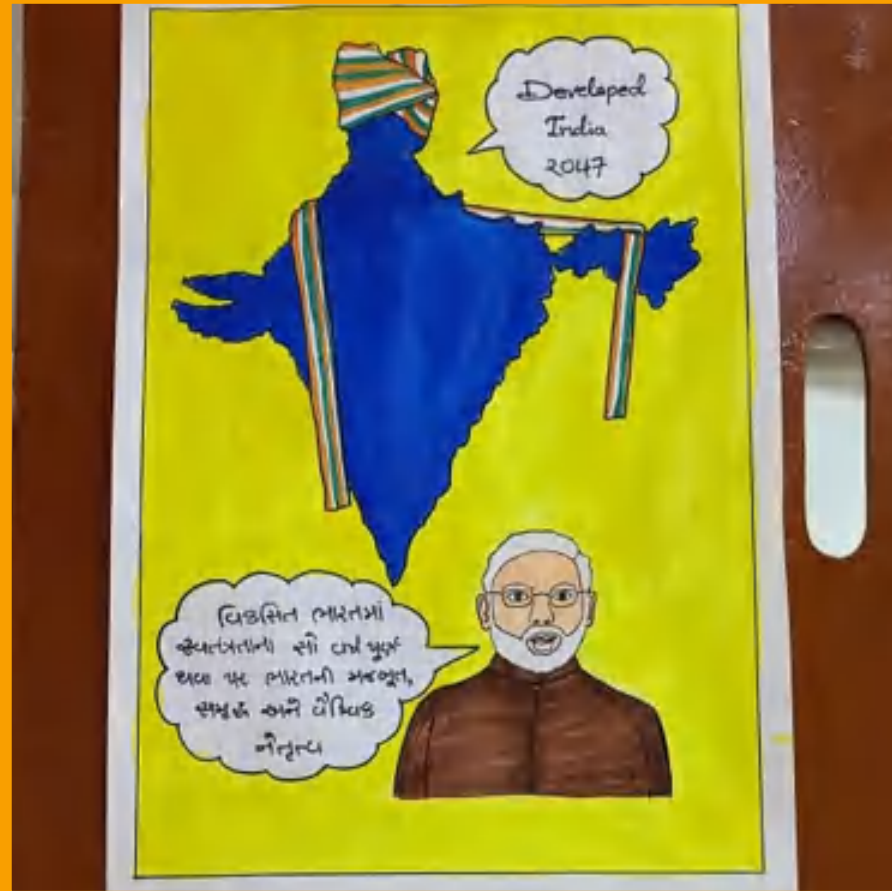 Developed
India
2047
વિકસિત ભારતમાં
સ્વતંત્રતાના સો વર્ષ પૂર્ણ
થવા પર ભારતની મજબૂત,
સમૃદ્ધ અને વૈશ્વિક
નેતૃત્વ